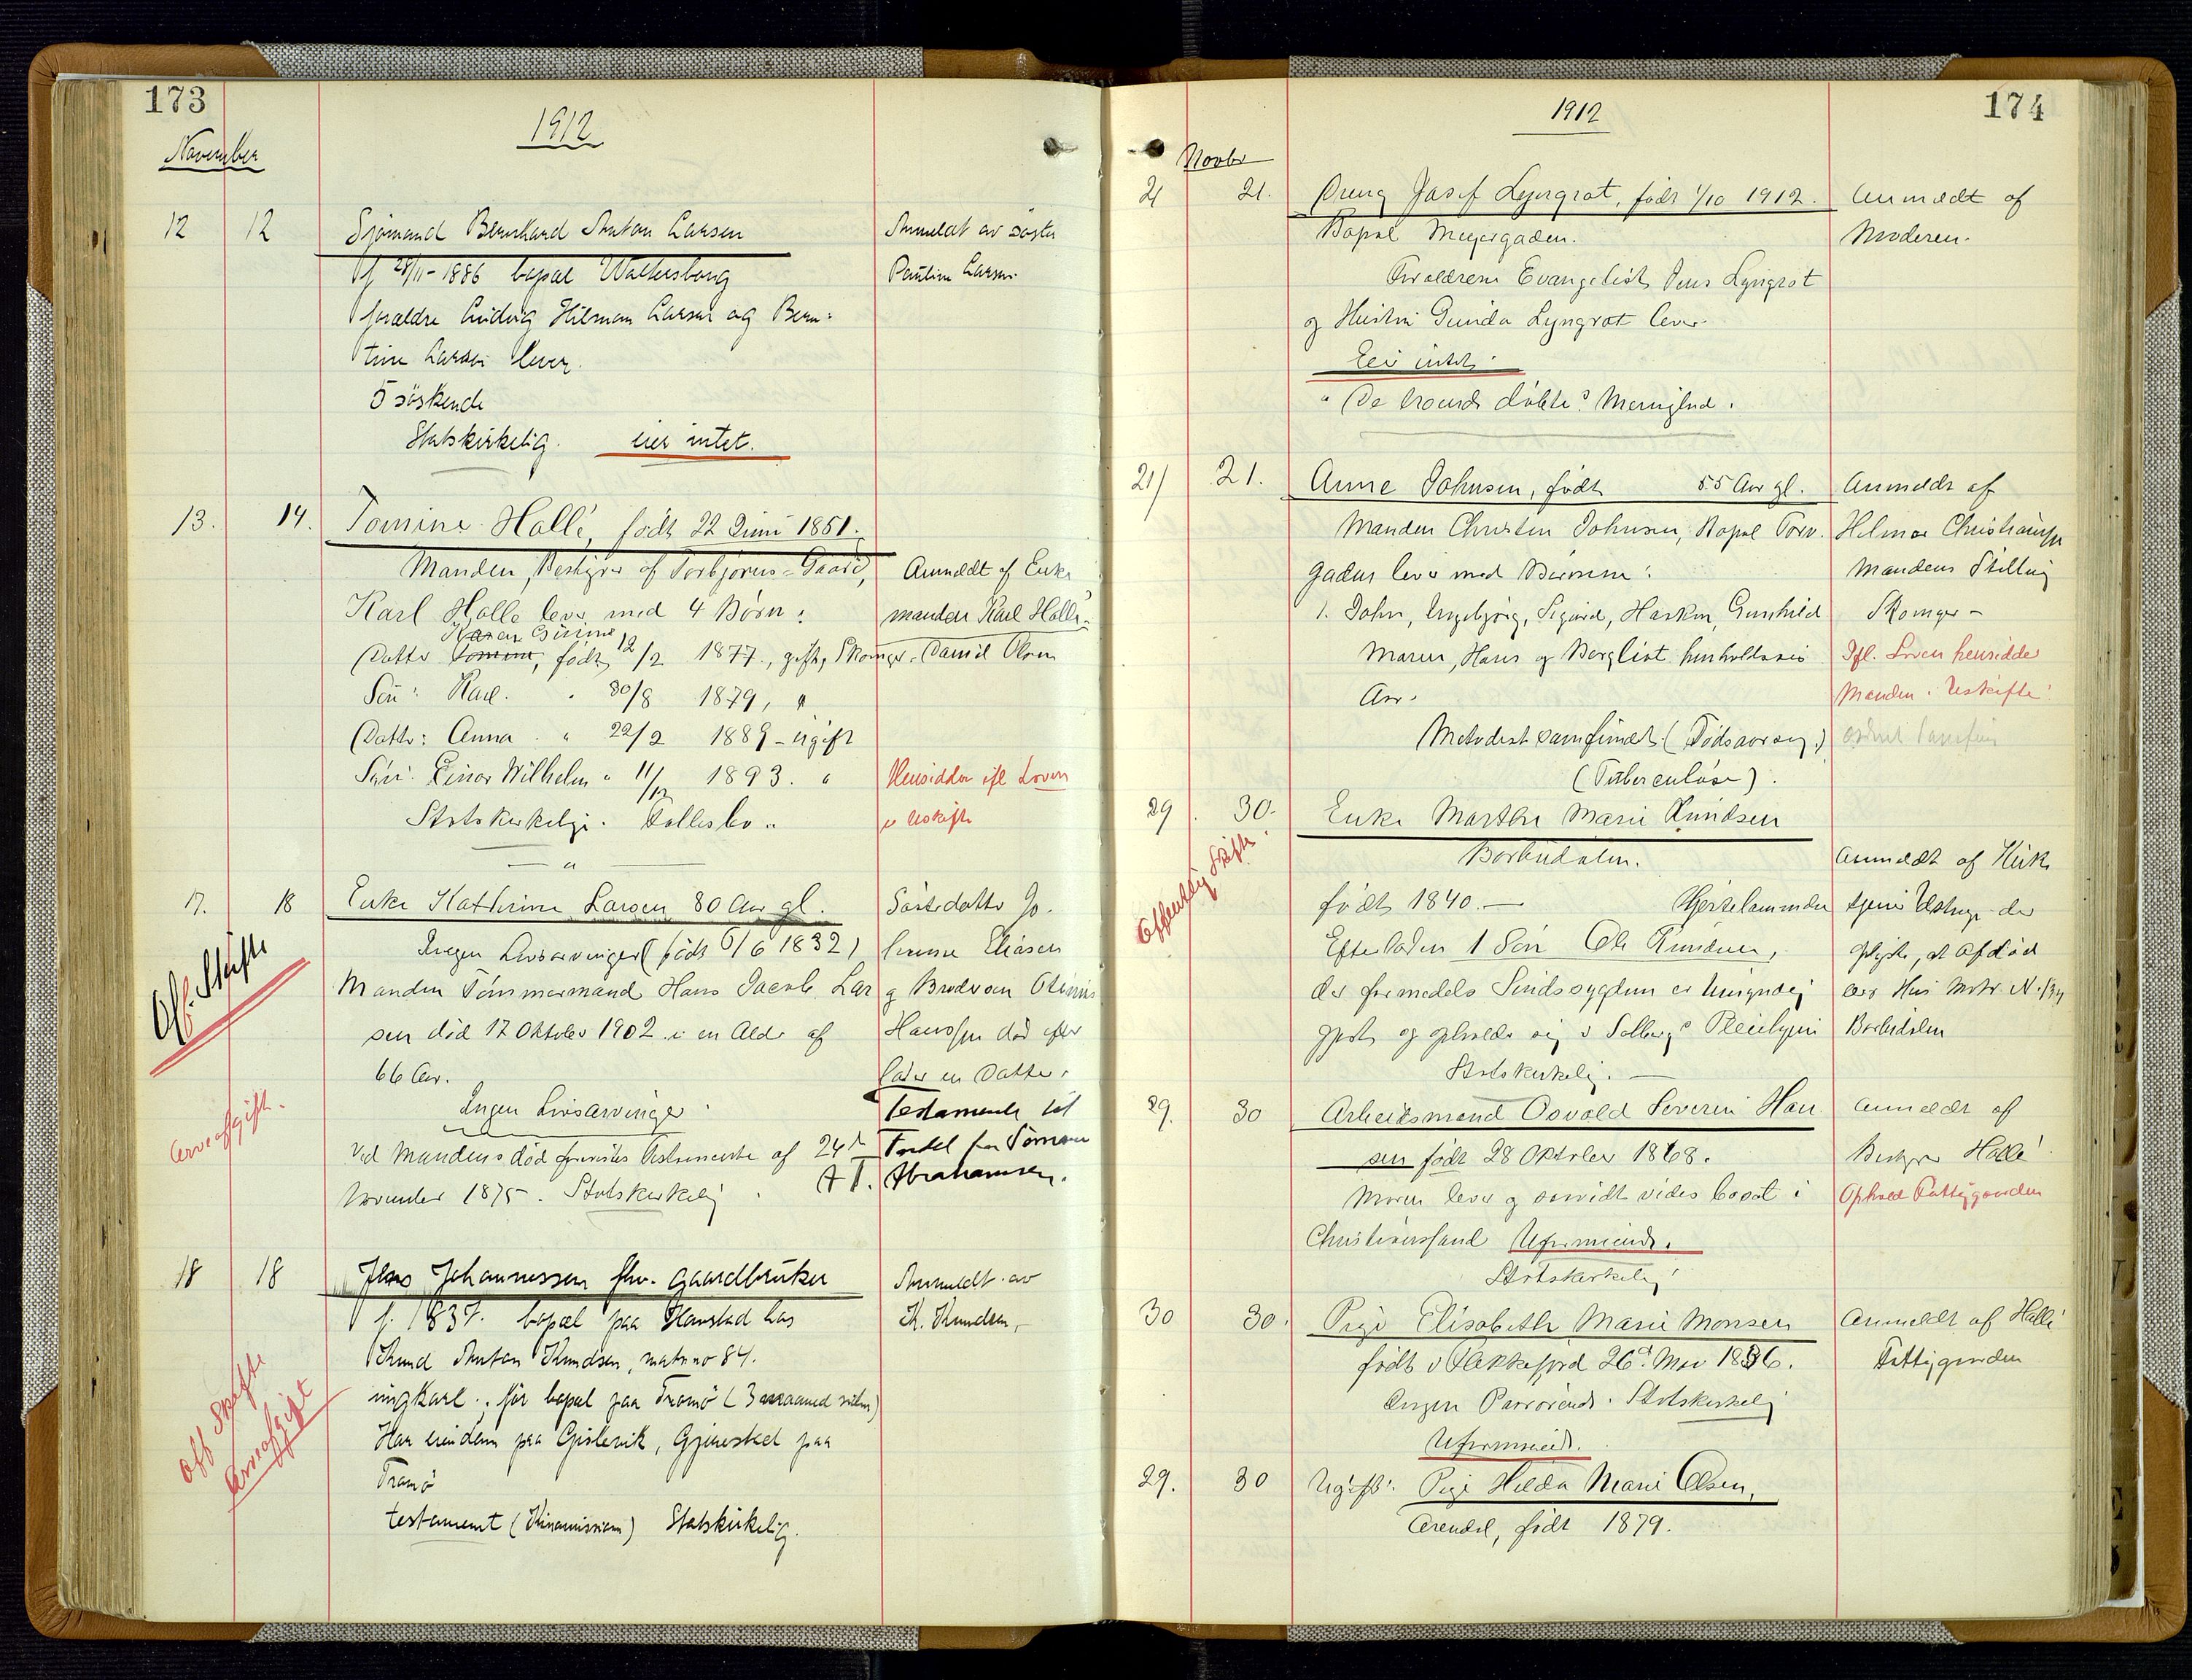 173
1912
November
12 12 Sjømand Bernhard Anton Larsen Anmeldt av søster
f 28/11-1886 bopæl Pauline Larsen.
forældre Ludvig Hilmar Larsen og Bern-
tine Larsen lever.
5 søskende
Statskirkelig. eier intet.
13. 14. Tomine Halle, født 22 Juni 1851.
Manden, Bestyrer af Torbjørns-Gaard, Anmeldt af Enke
Karl Halle lever med 4 Børn: manden Karl Halle.
Karen Gurine
Datter Tomine, født 12/2 1877, gift, Skomager Daniel Olsen
Søn: Karl. " 30/8 1879, "
Datter: Anna. " 22/2 1889 - ugift
Søn: Einar Wilhelm " 11/12 1893. " Hensidder ifl Loven
Statskirkelig. i Uskifte
17. 18 Enke Kathrine Larsen 80 Aar gl. Søsterdatter Jo-
Ingen Livsarvinger (født 6/6 1832) hanne Eliasen
Off. Skifte
Manden Tømmermand Hans Jacob Lar og Brodersøn Otinius
sen død 17 Oktober 1902 i en Alder af Hanssen død efter
66 Aar. lader en Datter.
Ingen Livsarvinger Testamente til
Arveafgift.
Ved Mandens død forevistes Testamente af 24de Fordel for Tømmer
November 1875. Statskirkelig A T. Abrahamsen.
18 18 Jens Johannessen fhv. gaardbruker Anmeldt av
f. 1837. bopæl paa Hanstad hos K. Knudsen,
Knud Anton Knudsen, matr no 84.
ungkarl. før bopæl paa Tromø (3 maaned siden)
off Skifte
Arveafgift
Har eiendom paa Gislevik, Gjerestad paa
Tromø
testament () Statskirkelig.
174
1912
Novbr
21 21. Dreng Josef Lyngrot, født 1/10 1912. Anmeldt af
Bopæl Meyergaden. Moderen.
Forældrene Evangelist Jens Lyngrot
og Hustru Gunda Lyngrot lever.
Eier intet.
"De troende døbte" Menighed.
21/ 21. Anne Johnsen, født 55 Aar gl. Anmeldt af
Manden Christen Johnsen, Bopæl Torv. Helmar Christiansen
gaden lever med Børnene: Mandens Stilling
1. John, Ingebjørg, Sigurd, Haakon, Gunhild Skomager -
Maren, Hans og Bergliot henholdsvis Ifl. Loven hensidder
Aar. Manden i Uskifte
Metodist samfundet. (Dødsaarsag.)
(Tuberculose).
29 30. Enke Marthe Marie Knudsen
Offentlig Skifte.
Barbudalen. Anmeldt af
født 1840. -
Efterlader 1 Søn Ole Knudsen, oplyste, at afdød
der formedels Sindssygdom er umyndig eier Hus Matr. N. 134
gjort og opholder sig i Solberg's Pleiehjem Barbudalen
Statskirkelig. -
29. 30 Arbeidsmand Osvald Severin Han- Anmeldt af
sen født 28 Oktober 1868. Bestyrer Halle
Moren lever og saavidt vides bosat i Ophold Fattiggaarden
Christianssand Uformuende.
Statskirkelig
30 30. Pige Elisabeth Marie Monsen Anmeldt af Halle
født i Flekkefjord 26de Mai 1836. Fattiggaarden
Ingen Paarørende. Statskirkelig
Uformuend.
29. 30 Ugift. Pige Hilda Marie Olsen,
Arendal, født 1879.